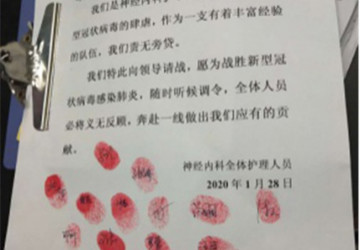 我们是神经内科护
型冠状病毒的肆虐，作为一支有着丰富经验
的队伍，我们责无旁贷。
我们特此向领导请战，愿为战胜新型冠
状病毒感染肺炎，随时听候调令，全体人员
必将义无反顾，奔赴一线做出我们应有的贡
献。
神经内科全体护理人员
2020 年 1 月 28 日